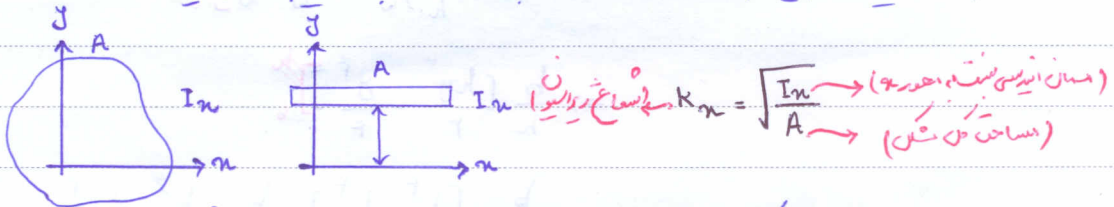 y y
A A
I_x I_x شعاع ژیراسیون ← k_x = √(I_x / A) → (ممان اینرسی نسبت به محور x)
→ (مساحت کل شکل)
x x